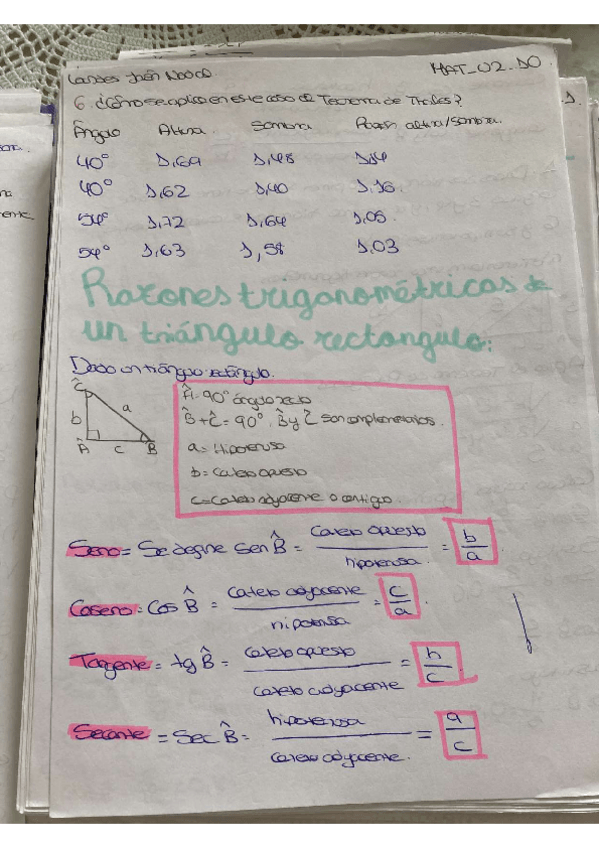 MAT_02_DO.
6. ¿Cómo se aplica en este caso el Teorema de Thales?
Ángulo Altura. Sombra Razón altura/sombra.
40° 1,69 1,48 1,14
40° 1,62 1,40 1,16.
54° 1,72 1,64 1,05.
54° 1,63 1,58 1.03
Razones trigonométricas de
un triángulo rectangulo:
Dado un triángulo rectángulo.
Ĉ
b a
Â c B̂
Â=90° ángulo recto
B̂+Ĉ=90°, B̂ y Ĉ son complementarios.
a=Hipotenusa
b=Cateto opuesto
c=Cateto adyacente o contiguo
Seno= Se define sen B̂ = cateto opuesto / hipotenusa. = b/a
Coseno= Cos B̂ = cateto adyacente / hipotenusa = c/a.
Tangente= tg B̂ = cateto opuesto / cateto adyacente = b/c
Secante = Sec B̂= hipotenusa / cateto adyacente. = a/c